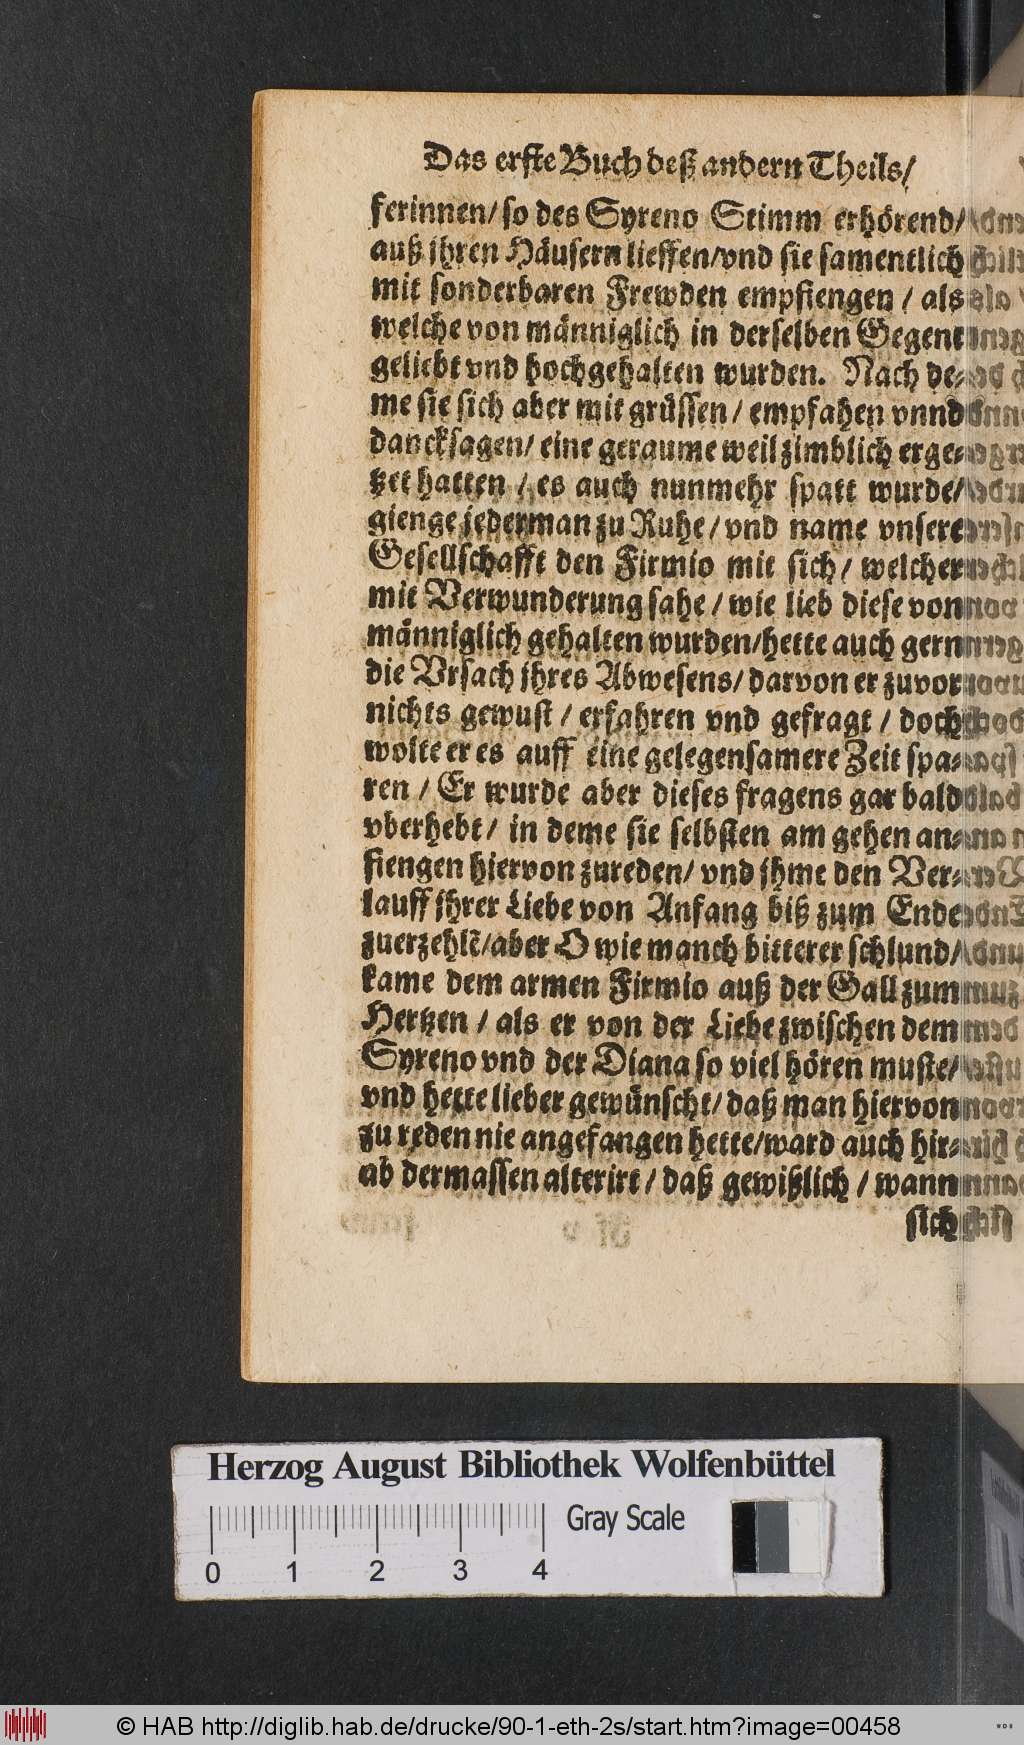 Das erste Buch deß andern Theils/
ferinnen/ so des Syreno Stimm erhörend/
auß jhren Häusern lieffen/vnd sie samentlich
mit sonderbaren Frewden empfiengen / als
welche von männiglich in derselben Gegent
geliebt vnd hochgehalten wurden. Nach de-
me sie sich aber mit grüssen / empfahen vnnd
dancksagen/ eine geraume weil zimblich erge-
tzet hatten / es auch nunmehr spatt wurde/
gienge jederman zu Ruhe / vnd name vnsere
Gesellschafft den Firmio mit sich / welcher
mit Verwunderung sahe / wie lieb diese von
männiglich gehalten wurden/hette auch gern
die Vrsach jhres Abwesens/ darvon er zuvor
nichts gewust / erfahren vnd gefragt / doch
wolte er es auff eine gelegensamere Zeit spa-
ren / Er wurde aber dieses fragens gar bald
vberhebt/ in deme sie selbsten am gehen an-
fiengen hiervon zureden/ vnd jhme den Ver-
lauff jhrer Liebe von Anfang biß zum Ende
zuerzehlẽ/aber O wie manch bitterer schlund/
kame dem armen Firmio auß der Gall zum
Hertzen / als er von der Liebe zwischen dem
Syreno vnd der Diana so viel hören muste/
vnd hette lieber gewünscht/ daß man hiervon
zu reden nie angefangen hette/ward auch hir-
ab dermassen alterirt / daß gewißlich / wann
sich
Herzog August Bibliothek Wolfenbüttel
Gray Scale
0 1 2 3 4
© HAB http://diglib.hab.de/drucke/90-1-eth-2s/start.htm?image=00458